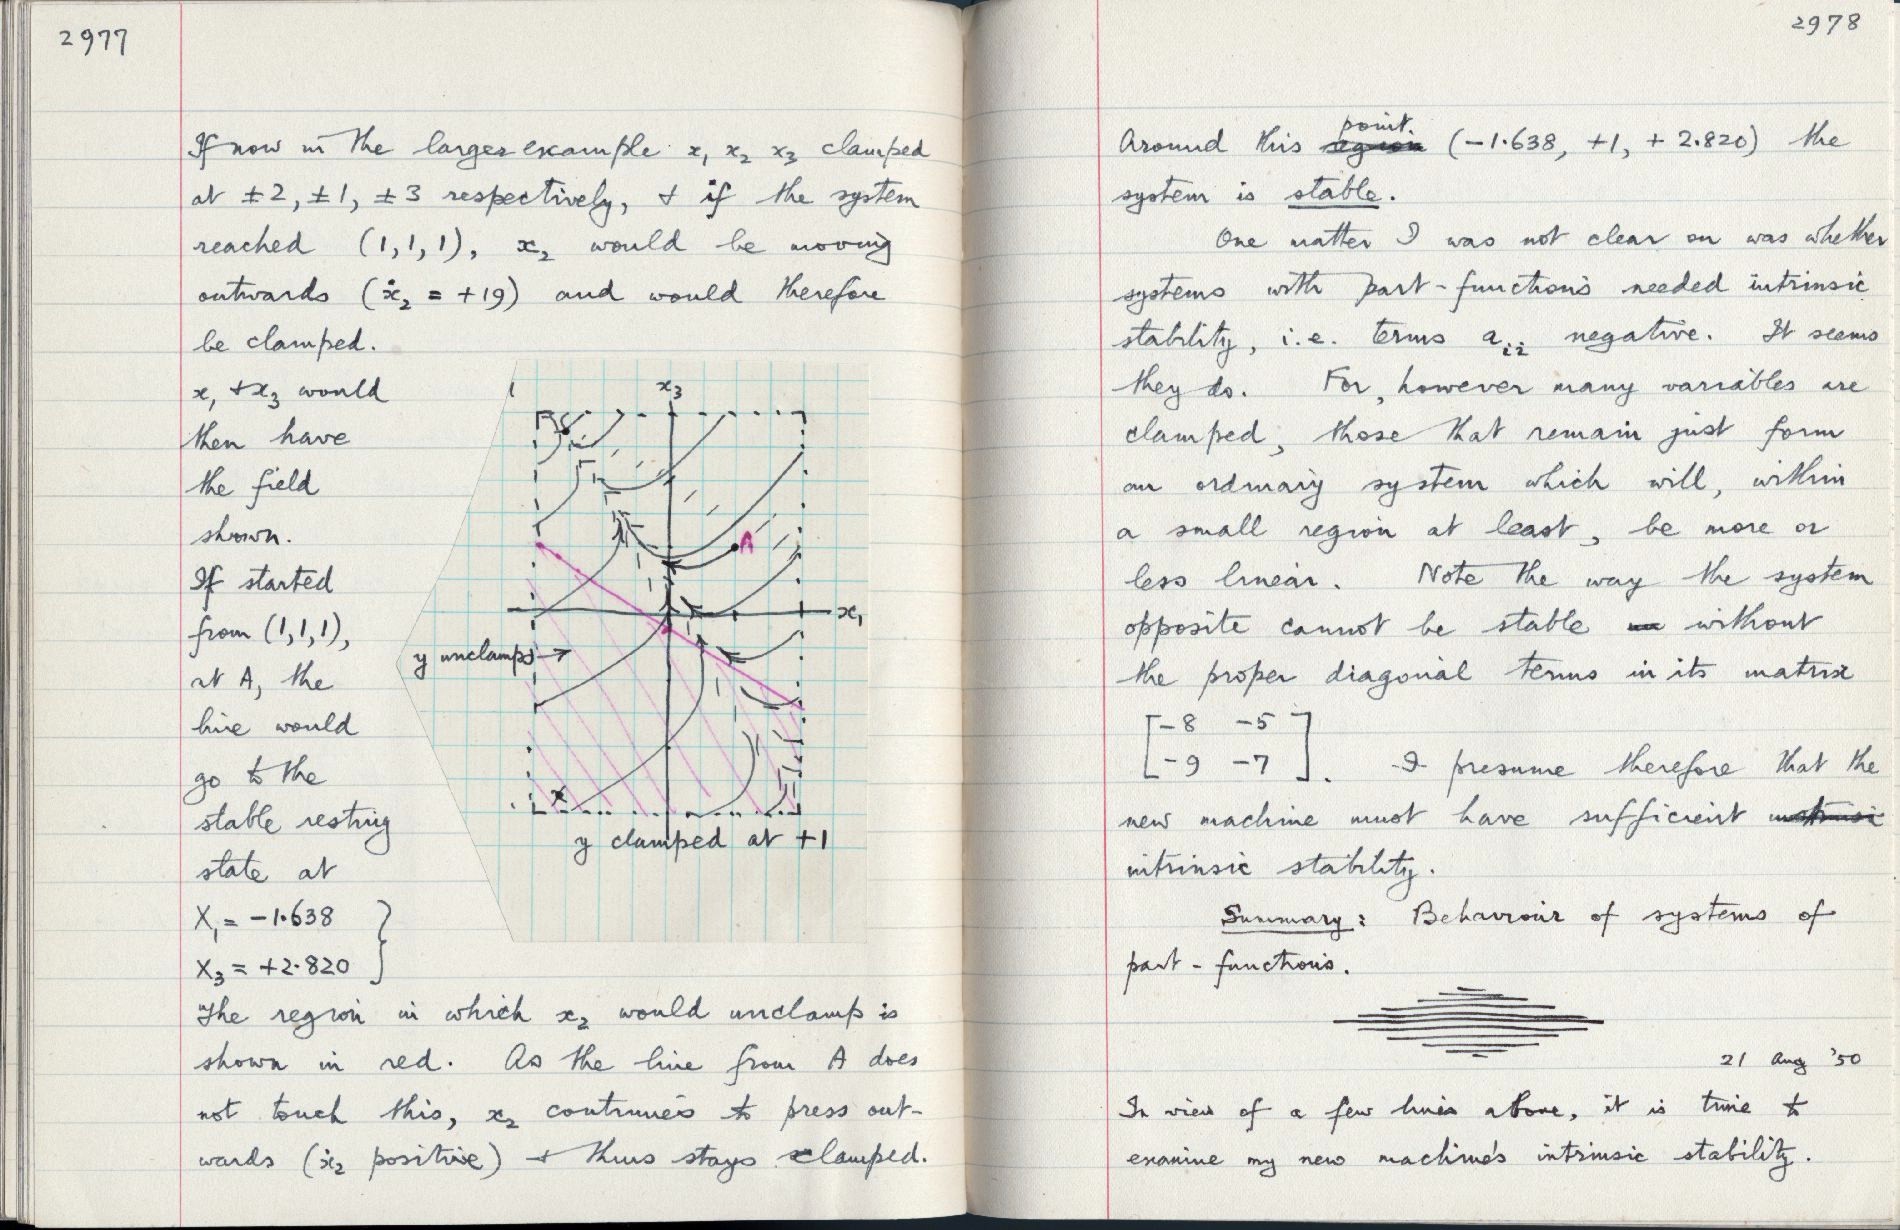 2977
If now in the larger example x₁ x₂ x₃ clamped
at ±2, ±1, ±3 respectively, & if the system
reached (1,1,1), x₂ would be moving
outwards (ẋ₂ = +19) and would therefore
be clamped.
x₁ & x₃ would
then have
the field
shown.
If started
from (1,1,1),
at A, the
line would
go to the
stable resting
state at
X₁ = -1·638
X₃ = +2·820
x₃
A
x₁
y unclamps →
y clamped at +1
The region in which x₂ would unclamp is
shown in red. As the line from A does
not touch this, x₂ continues to press out-
wards (ẋ₂ positive) & thus stays clamped.
2978
point.
Around this region (-1·638, +1, +2·820) the
system is stable.
One matter I was not clear on was whether
systems with part-functions needed intrinsic
stability, i.e. terms aᵢᵢ negative. It seems
they do. For, however many variables are
clamped, those that remain just form
an ordinary system which will, within
a small region at least, be more or
less linear. Note the way the system
opposite cannot be stable without
the proper diagonal terms in its matrix
[-8 -5
-9 -7]. I presume therefore that the
new machine must have sufficient
intrinsic stability.
Summary: Behaviour of systems of
part-functions.
21 Aug '50
In view of a few lines above, it is time to
examine my new machine's intrinsic stability.